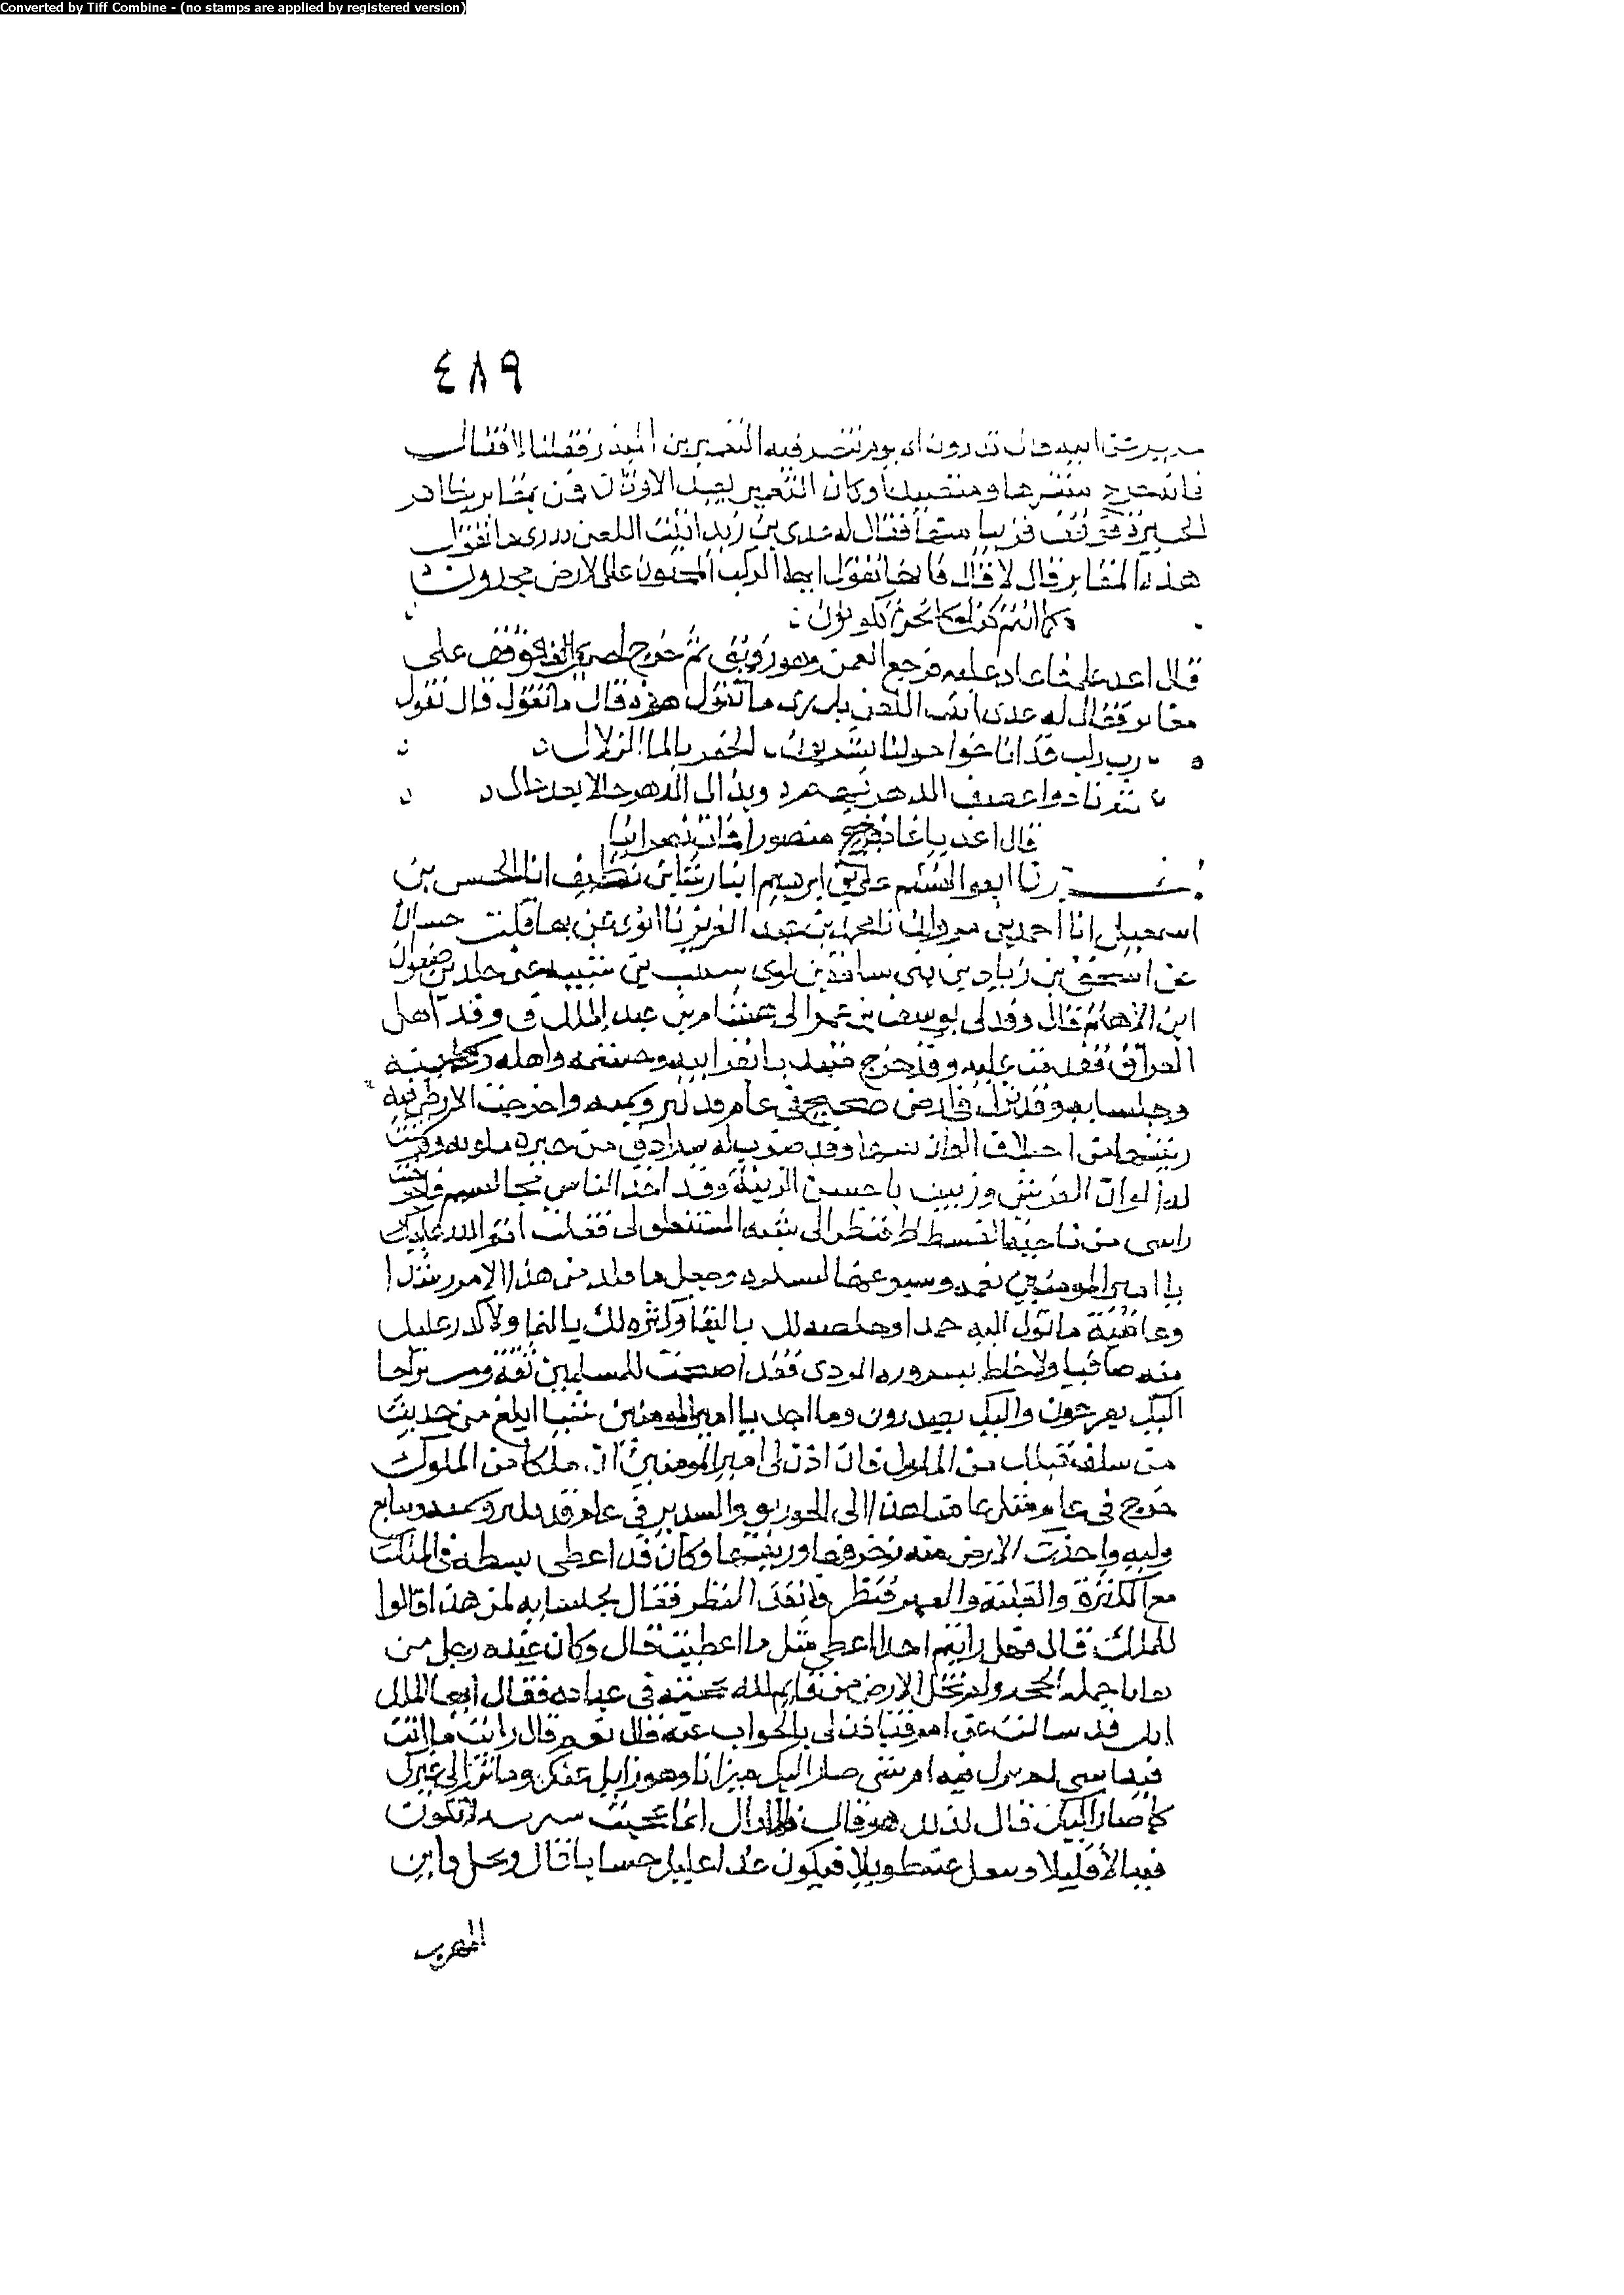 Converted by Tiff Combine - (no stamps are applied by registered version)
٤٨٩
تدرون اي يوم تنصر فيه النعمن بن المنذر فقلنا لا فقال
خرج متنزها ومتصيدا وكان النعمن يعبد الاوثان فمن بمقابر بظاهر
الحيرة فوقف قريبا منها فقال له عدي بن زيد ابيت اللعن تدري ما تقول
هذه المقابر قال لا قال فانها تقول ايها الركب المخبون على الارض مجدون
كما انتم كنا كما نحن تكونون
قال اعد علي فاعاد عليه فرجع النعمن وهو رقيق ثم خرج فوقف على
مقابر فقال له عدي ابيت اللعن هل تدري ما تقول هذه قال ما تقول قال تقول
رب ركب قد اناخوا حولنا يشربون الخمر بالما الزلال
ثم نادوا عصف الدهر بهم وكذاك الدهر حالا بعد حال
قال اعد فاعاد فرجع متنصرا فمات نصرانيا
ابو القسم علي بن ابرهيم انا رشا بن نظيف انا الحسن بن
اسمعيل انا احمد بن مروان نا محمد بن عبد العزيز نا ابي عن بهلول بن حسان
عن اسحق بن زياد من بني سامة بن لوي عن شبيب بن شيبة عن خلد بن صفوان
ابن الاهتم قال وفدني يوسف بن عمر الى هشام بن عبد الملك في وفد اهل
العراق فقدمت عليه وقد خرج متبديا بقرابته وحشمه واهله وحاشيته
وجلسايه وقد نزل في ارض صحصح في عام قد بكر وسميه واخرجت الارض فيه
زينتها من اختلاف الوان نبتها وقد ضرب له سرادق من حبرة
الفرش وزين باحسن الزينة وقد اخذ الناس مجالسهم فاخرجت
راسي من ناحية الفسطاط فنظر الي شبه المستنطق لي فقلت اتم الله عليك
يا امير المومنين نعمه وسوغكها بشكره وجعل ما قلدك من هذا الامر رشدا
وعاقبة ما توول اليه حمدا وخلصه لك بالتقا وكثره لك بالنما ولا كدر عليك
منه صافيا ولا خلط بسروره الردي فقد اصبحت للمسلمين ثقة ومستراحا
اليك يفزعون واليك يصدرون وما اجد يا امير المومنين شيا ابلغ من حديث
من سلف قبلك من الملوك فان اذن لي امير المومنين ان ملكا من الملوك
خرج في عام مثل عامنا هذا الى الخورنق والسدير في عام قد بكر وسميه وتتابع
وليه واخذت الارض منه زخرفها وزينتها وكان قد اعطي بسطة في الملك
مع الكثرة والغلبة والقهر فنظر فابعد النظر فقال لجلسايه لمن هذا قالوا
للملك قال فهل رايتم احدا اعطي مثل ما اعطيت قال وكان عنده رجل من
بقايا حملة الحجة ولم تخل الارض من قايم لله بحجته في عباده فقال ايها الملك
انك قد سالت عن امر فتاذن لي بالجواب عنه قال نعم قال رايت ما انت
فيه اشي لم تزل فيه ام شي صار اليك ميراثا وهو زايل عنك وصاير الى غيرك
كما صار اليك قال كذلك هو قال فلا اراك انما عجبت بشي يسير لا تكون
فيه الا قليلا وتنقل عنه طويلا فيكون غدا عليك حسابا قال ويحك فاين
المهرب